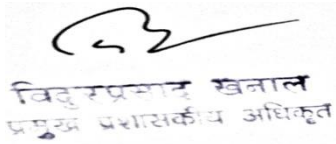 विदुरप्रसाद खनाल
प्रमुख प्रशासकीय अधिकृत